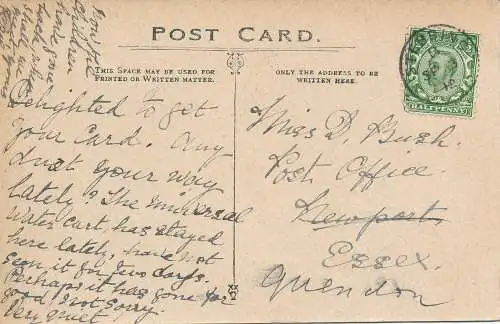 POST CARD.
THIS SPACE MAY BE USED FOR
PRINTED OR WRITTEN MATTER.
ONLY THE ADDRESS TO BE
WRITTEN HERE.
Delighted to get
your Card. Any
dust your way
lately? The universal
Water cart, has stayed
here lately, have not
seen it for two days.
Perhaps it has gone for
good, not sorry.
Very quiet
children
have gone
back
HALFPENNY
Miss D. Bush.
Post Office.
Newport,
Essex.
Quendon